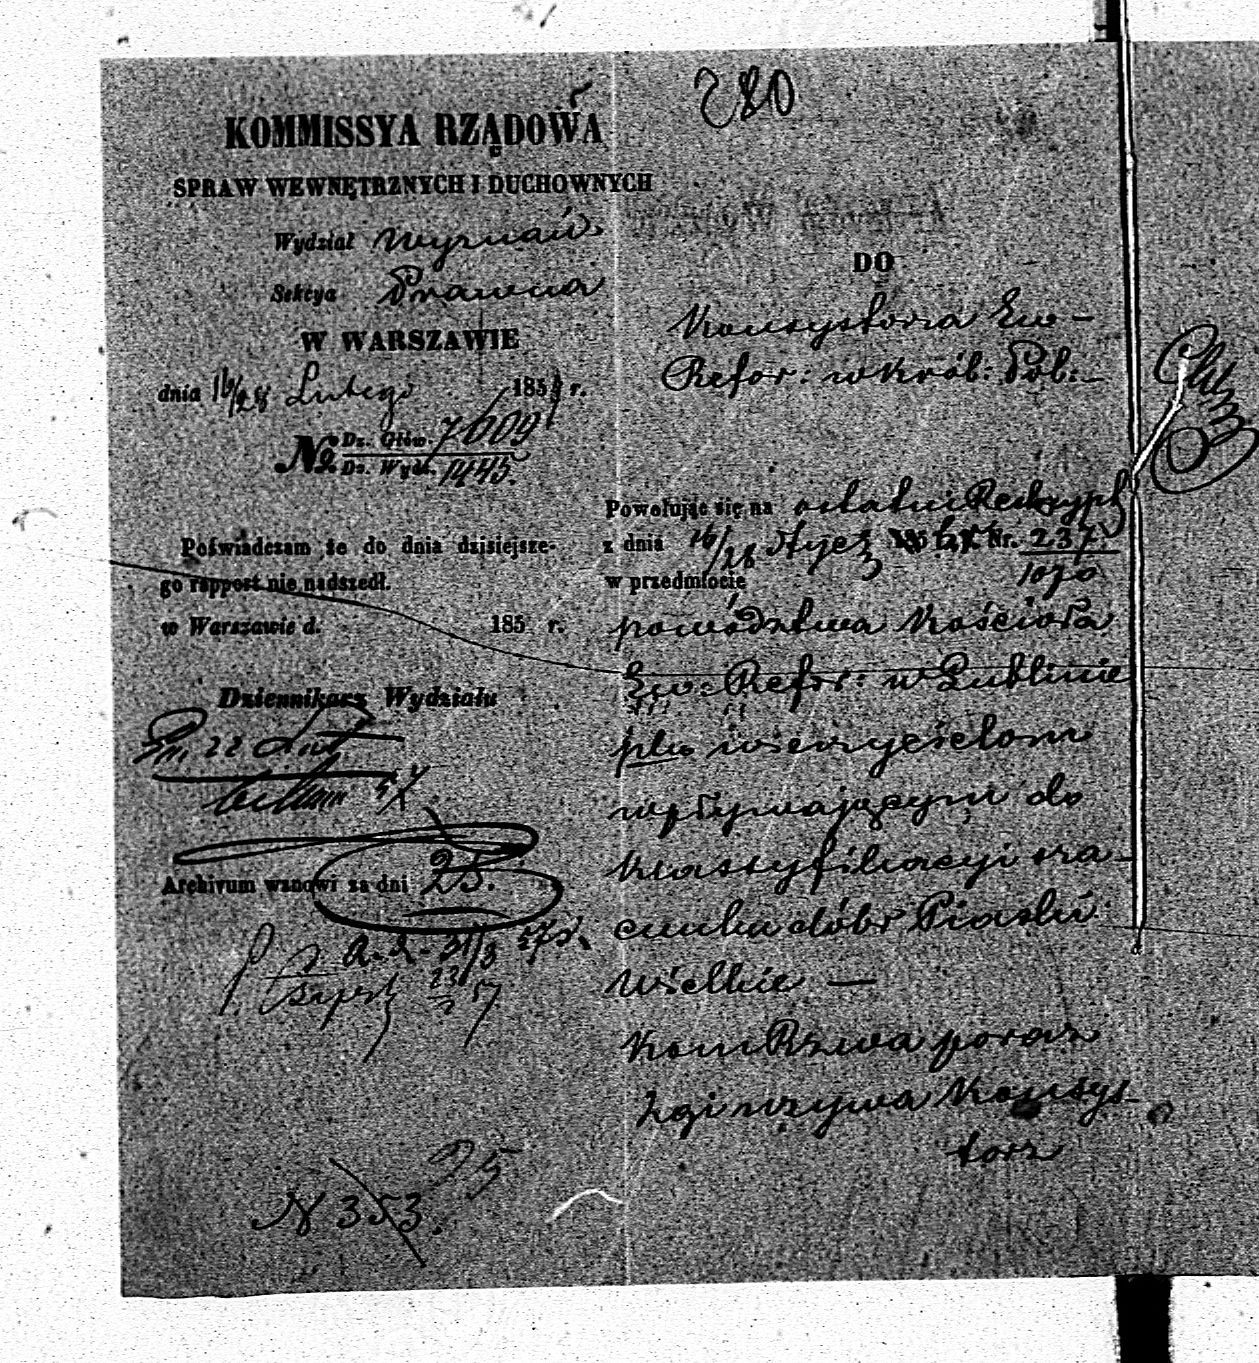 280
KOMMISSYA RZĄDOWA
SPRAW WEWNĘTRZNYCH I DUCHOWNYCH
Wydział Wyznań.
Sekcya Prawna
W WARSZAWIE
dnia 16/28 Lutego 1857 r.
No. Dz. Głów. 7609
Dz. Wydz. 1445.
Poświadczam że do dnia dzisiejsze-
go rapport nie nadszedł.
w Warszawie d. 185 r.
Dziennikarz Wydziału
Archivum wznowi za dni 25.
25
N 353.
DO
Konsystorza Ew-
Refor: w Król: Pol:
Powołując się na ostatni Reskrypt
z dnia 16/28 Stycz Nr. 237.
1070
w przedmiocie
powództwa Kościoła
Ew: Refor: w Lublinie
pko wierzycielom
wpływającym do
klassyfikacyi sza-
cunku dóbr Piaski
Wielkie —
Kom Rzwa poraz
2gi wzywa Konsys-
torz